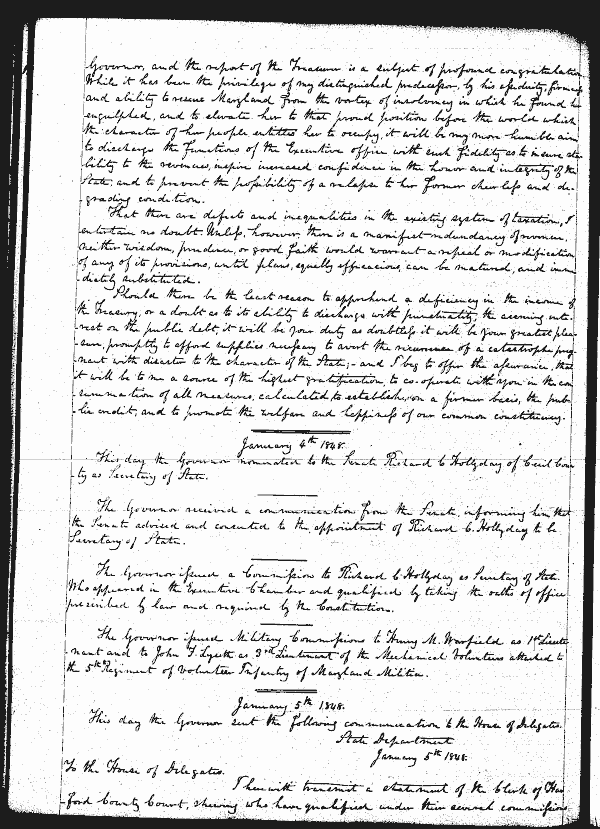 Governor, and the report of the Treasurer is a subject of profound congratulation
While it has been the privilege of my distinguished predecessor, by his firmness
and ability to rescue Maryland from the vortex of insolvency in which he found her
engulphed, and to elevate her to that proud position before the world which
the character of her people entitles her to occupy, it will be my more humble aim
to discharge the functions of the Executive office with such fidelity as to insure sta-
bility to the revenues, inspire increased confidence in the honor and integrity of the
State, and to prevent the possibility of a relapse to her former cheerless and de-
grading condition.
That there are defects and inequalities in the existing system of taxation, I
entertain no doubt. Unless, however, there is a manifest redundancy of revenue,
neither wisdom, prudence, or good faith would warrant a repeal or modification
of any of its provisions, until plans, equally efficacious, can be matured, and imme
-diately substituted.
Should there be the least reason to apprehend a deficiency in the income of
the Treasury, or a doubt as to its ability to discharge with punctuality the accruing inte-
rest on the public debt, it will be your duty as doubtless it will be your greatest plea-
sure, promptly to afford supplies necessary to avert the recurrence of a catastrophe preg-
nant with disaster to the character of the State;- and I beg to offer the assurance, that
it will be to me a source of the highest gratification, to co-operate with you in the con-
summation of all measures, calculated to establish, on a firmer basis, the pub-
lic credit, and to promote the welfare and happiness of our common constituency.
January 4th 1848.
This day the Governor nominated to the Senate Richard C Hollyday of Cecil Coun
ty as Secretary of State.
The Governor received a communication from the Senate, informing him that
the Senate advised and consented to the appointment of Richard C. Hollyday to be
Secretary of State.
The Governor issued a Commission to Richard C Hollyday as Secretary of State.
Who appeared in the Executive Chamber and qualified by taking the oaths of office
prescribed by law and required by the Constitution.
The Governor issued Military Commissions to Henry M. Warfield as 1st Lieute
nant and to John F. as 3rd Lieutenant of the Mechanical Volunteers attached to
the 5th Regiment of Volunteer Infantry of Maryland Militia.
January 5th 1848.
This day the Governor sent the following communication to the House of Delegates.
State Department
January 5th 1848.
To the House of Delegates.
I herewith transmit a statement of the Clerk of Har
ford County Court, shewing who have qualified under their several commissions